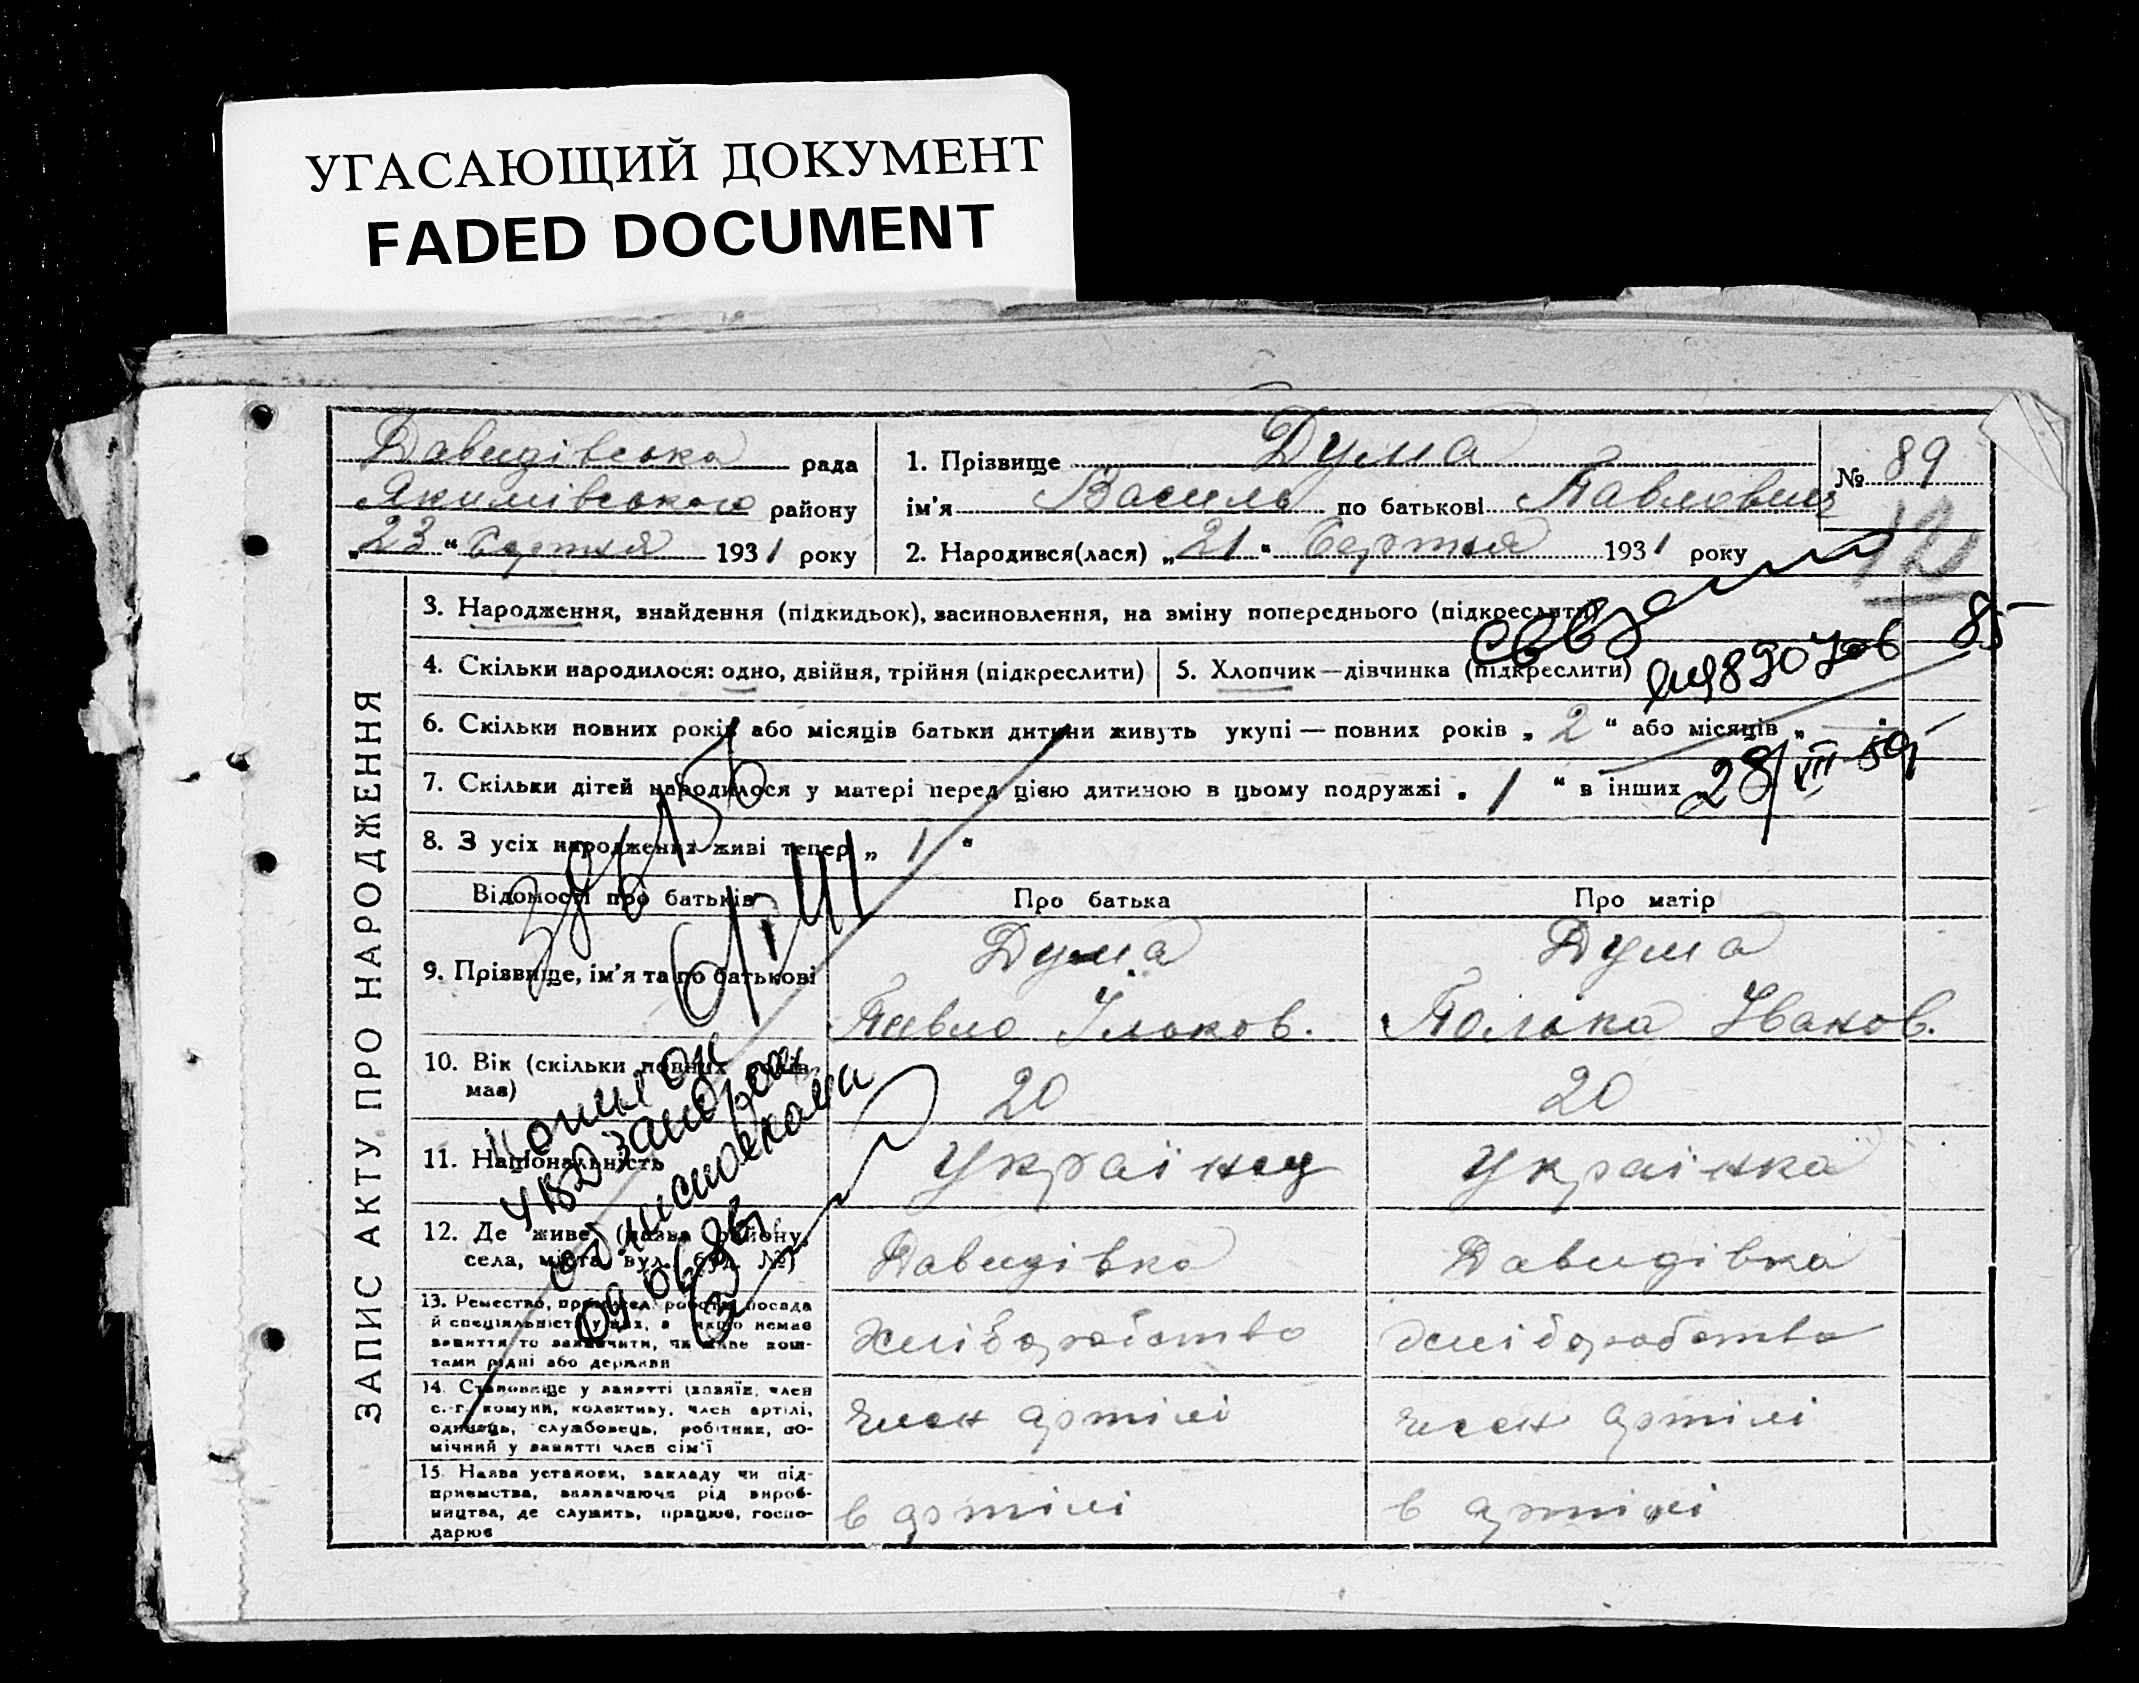 УГАСАЮЩИЙ ДОКУМЕНТ
FADED DOCUMENT
Давидівська рада
Якимівського району
„23“ Серпня 1931 року
1. Прізвище Дума
ім'я Василь по батькові Павлович
2. Народився(лася) „21“ Серпня 1931 року
№ 89
121
ЗАПИС АКТУ ПРО НАРОДЖЕННЯ
3. Народження, знайдення (підкидьок), засиновлення, на зміну попереднього (підкреслити)
4. Скільки народилося: одно, двійня, трійня (підкреслити)
5. Хлопчик—дівчинка (підкреслити)
85
6. Скільки повних років або місяців батьки дитини живуть укупі — повних років „ 2 “ або місяців „ — “
7. Скільки дітей народилося у матері перед цією дитиною в цьому подружжі „ 1 “ в інших
28/VII-59
8. З усіх народжених живі тепер „ 1 “
Відомості про батьків
Про батька
Про матір
9. Прізвище, ім'я та по батькові
Дума
Павло Ільков.
Дума
Полька Іванов.
10. Вік (скільки повних років має)
20
20
11. Національність
Українец
Українка
12. Де живе (назва району, села, міста, вул., буд. №)
Давидівка
Давидівка
13. Ремество, промисел, робота, посада й спеціяльність у них, а якщо немає заняття то зазначити, чи живе коштами рідні або держави
Хліборобство
Хліборобство
14. Становище у занятті (хазяїн, член с.-г. комуни, колективу, член артілі, одинець, службовець, робітник, помічний у занятті член сім'ї
член артілі
член артілі
15. Назва установи, закладу чи підприємства, зазначаючи рід виробництва, де служить, працює, господарює
в артілі
в артілі
09.06.86